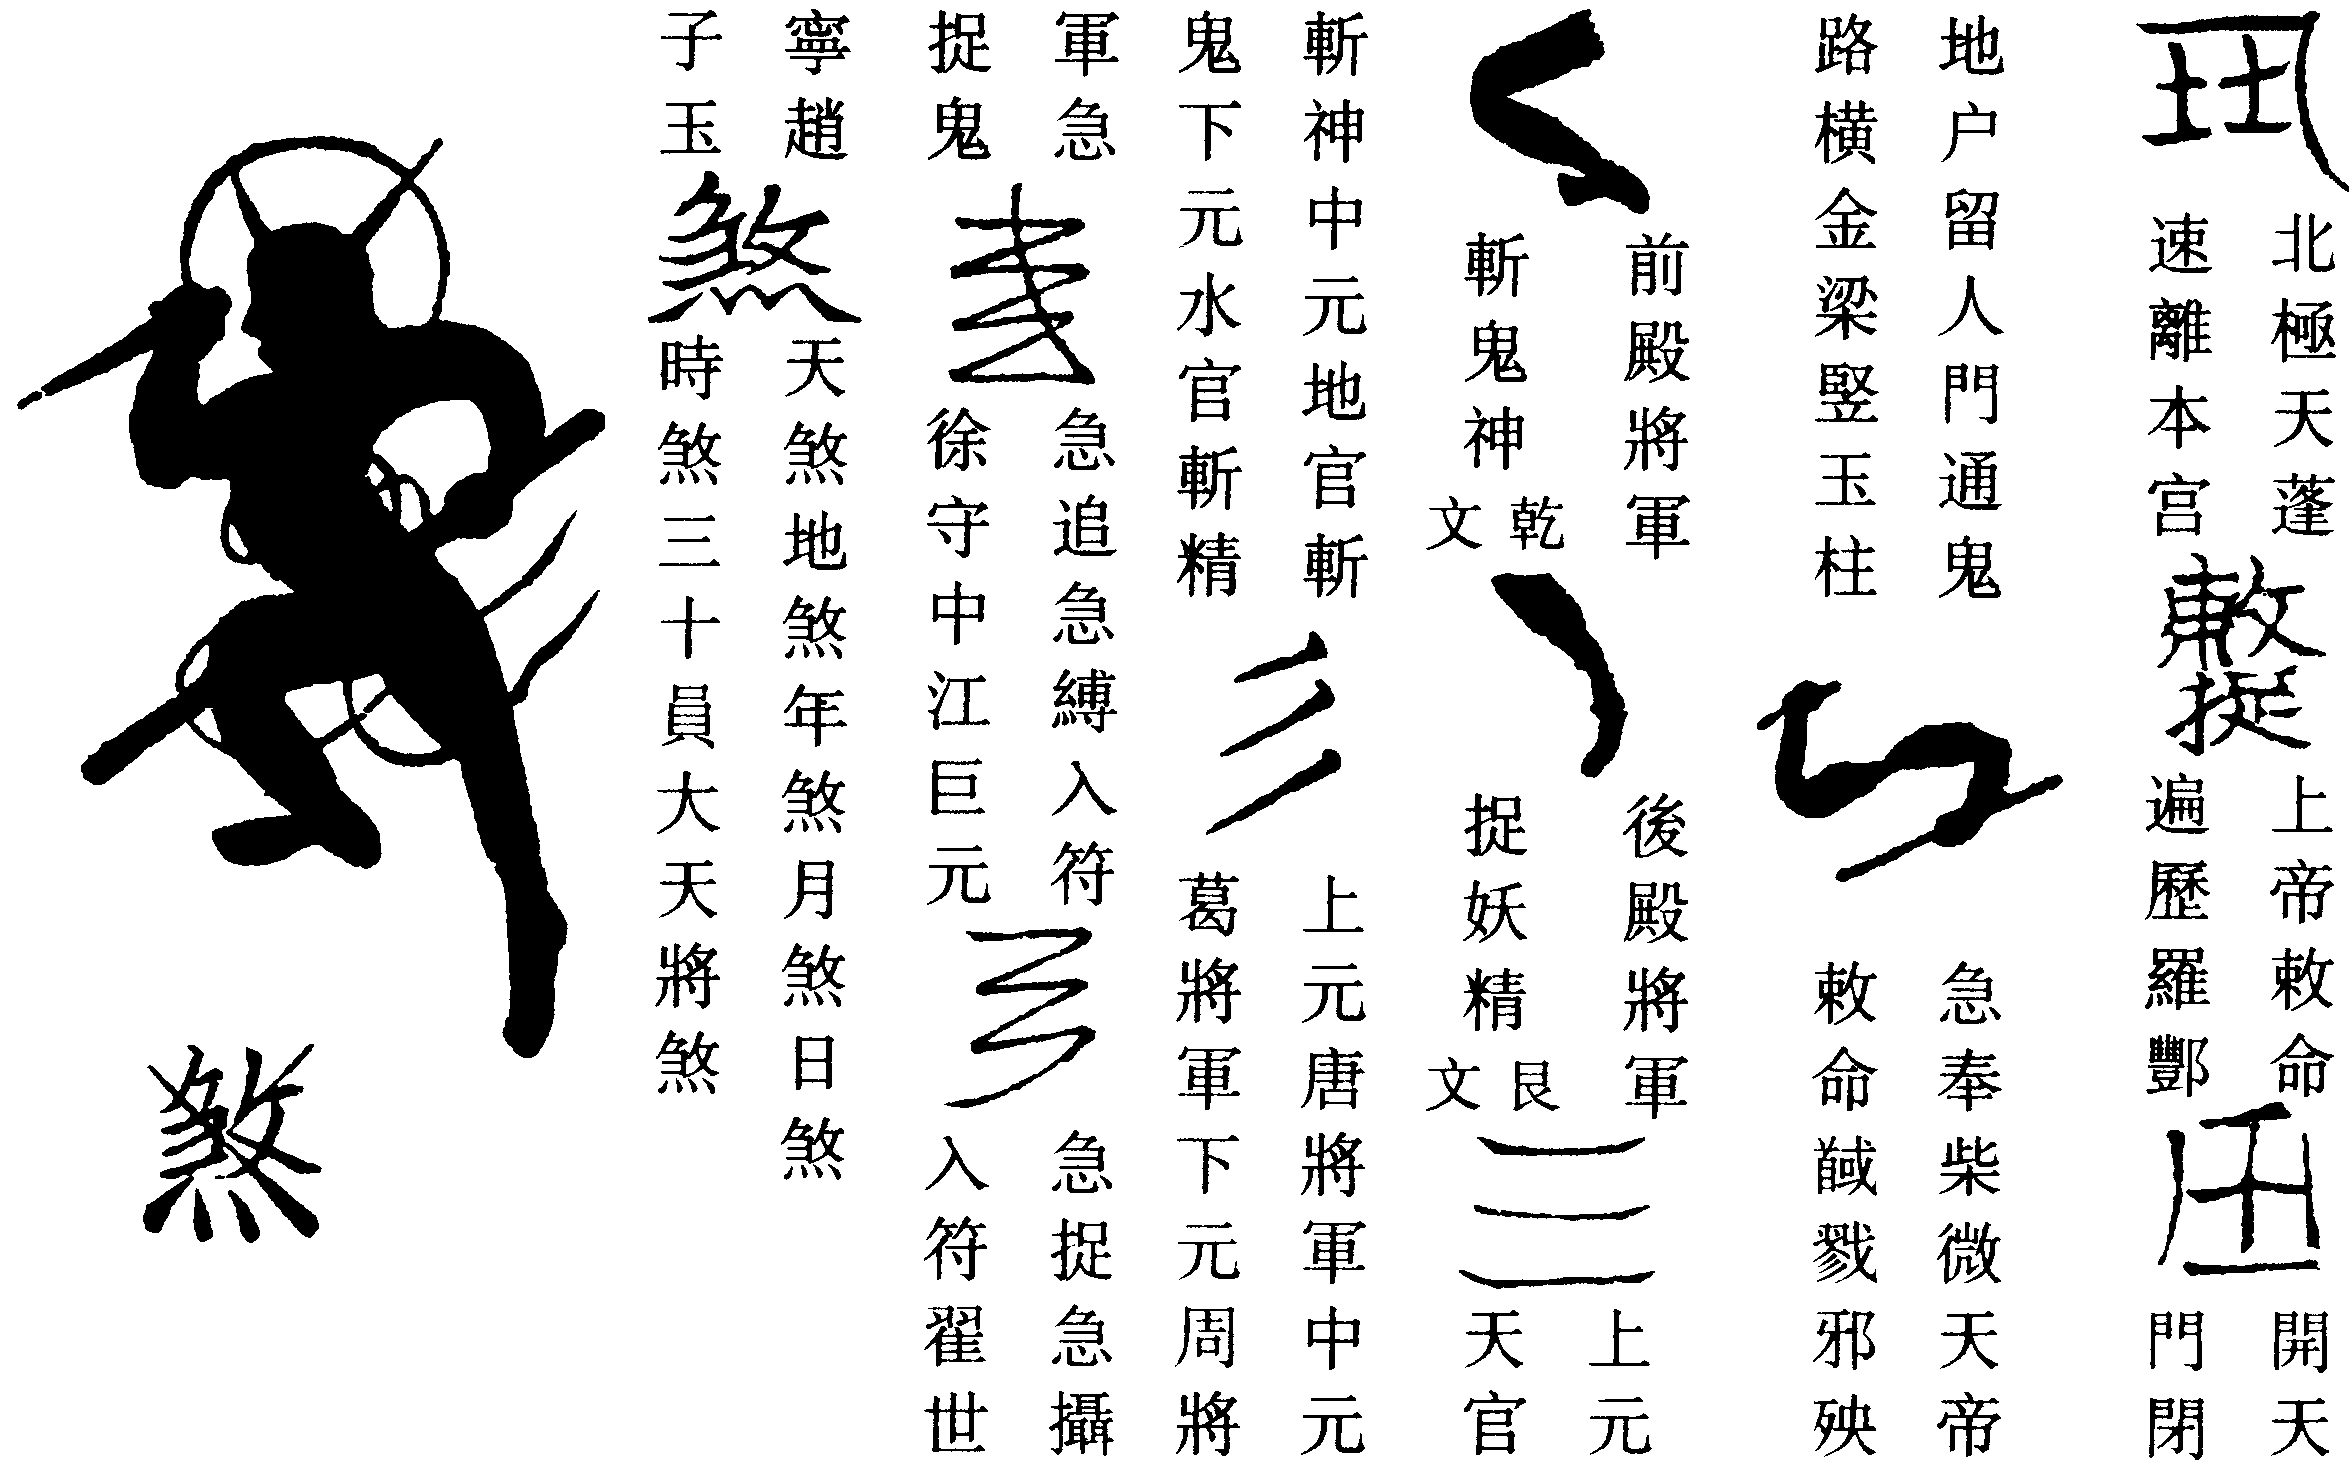 北極天蓬
速離本宮
敕捉
上帝敕命
遍歷羅酆
開天
門閉
地户留人門通鬼
路横金梁竪玉柱
急奉柴微天帝
敕命馘戮邪殃
前殿將軍
斬鬼神
乾文
後殿將軍
捉妖精
艮文
上元
天官
斬神中元地官斬
鬼下元水官斬精
上元唐將軍中元
葛將軍下元周將
軍急
捉鬼
急追急縛入符
徐守中江巨元
急捉急攝
入符翟世
寧趙
子玉
煞
天煞地煞年煞月煞日煞
時煞三十員大天將煞
煞